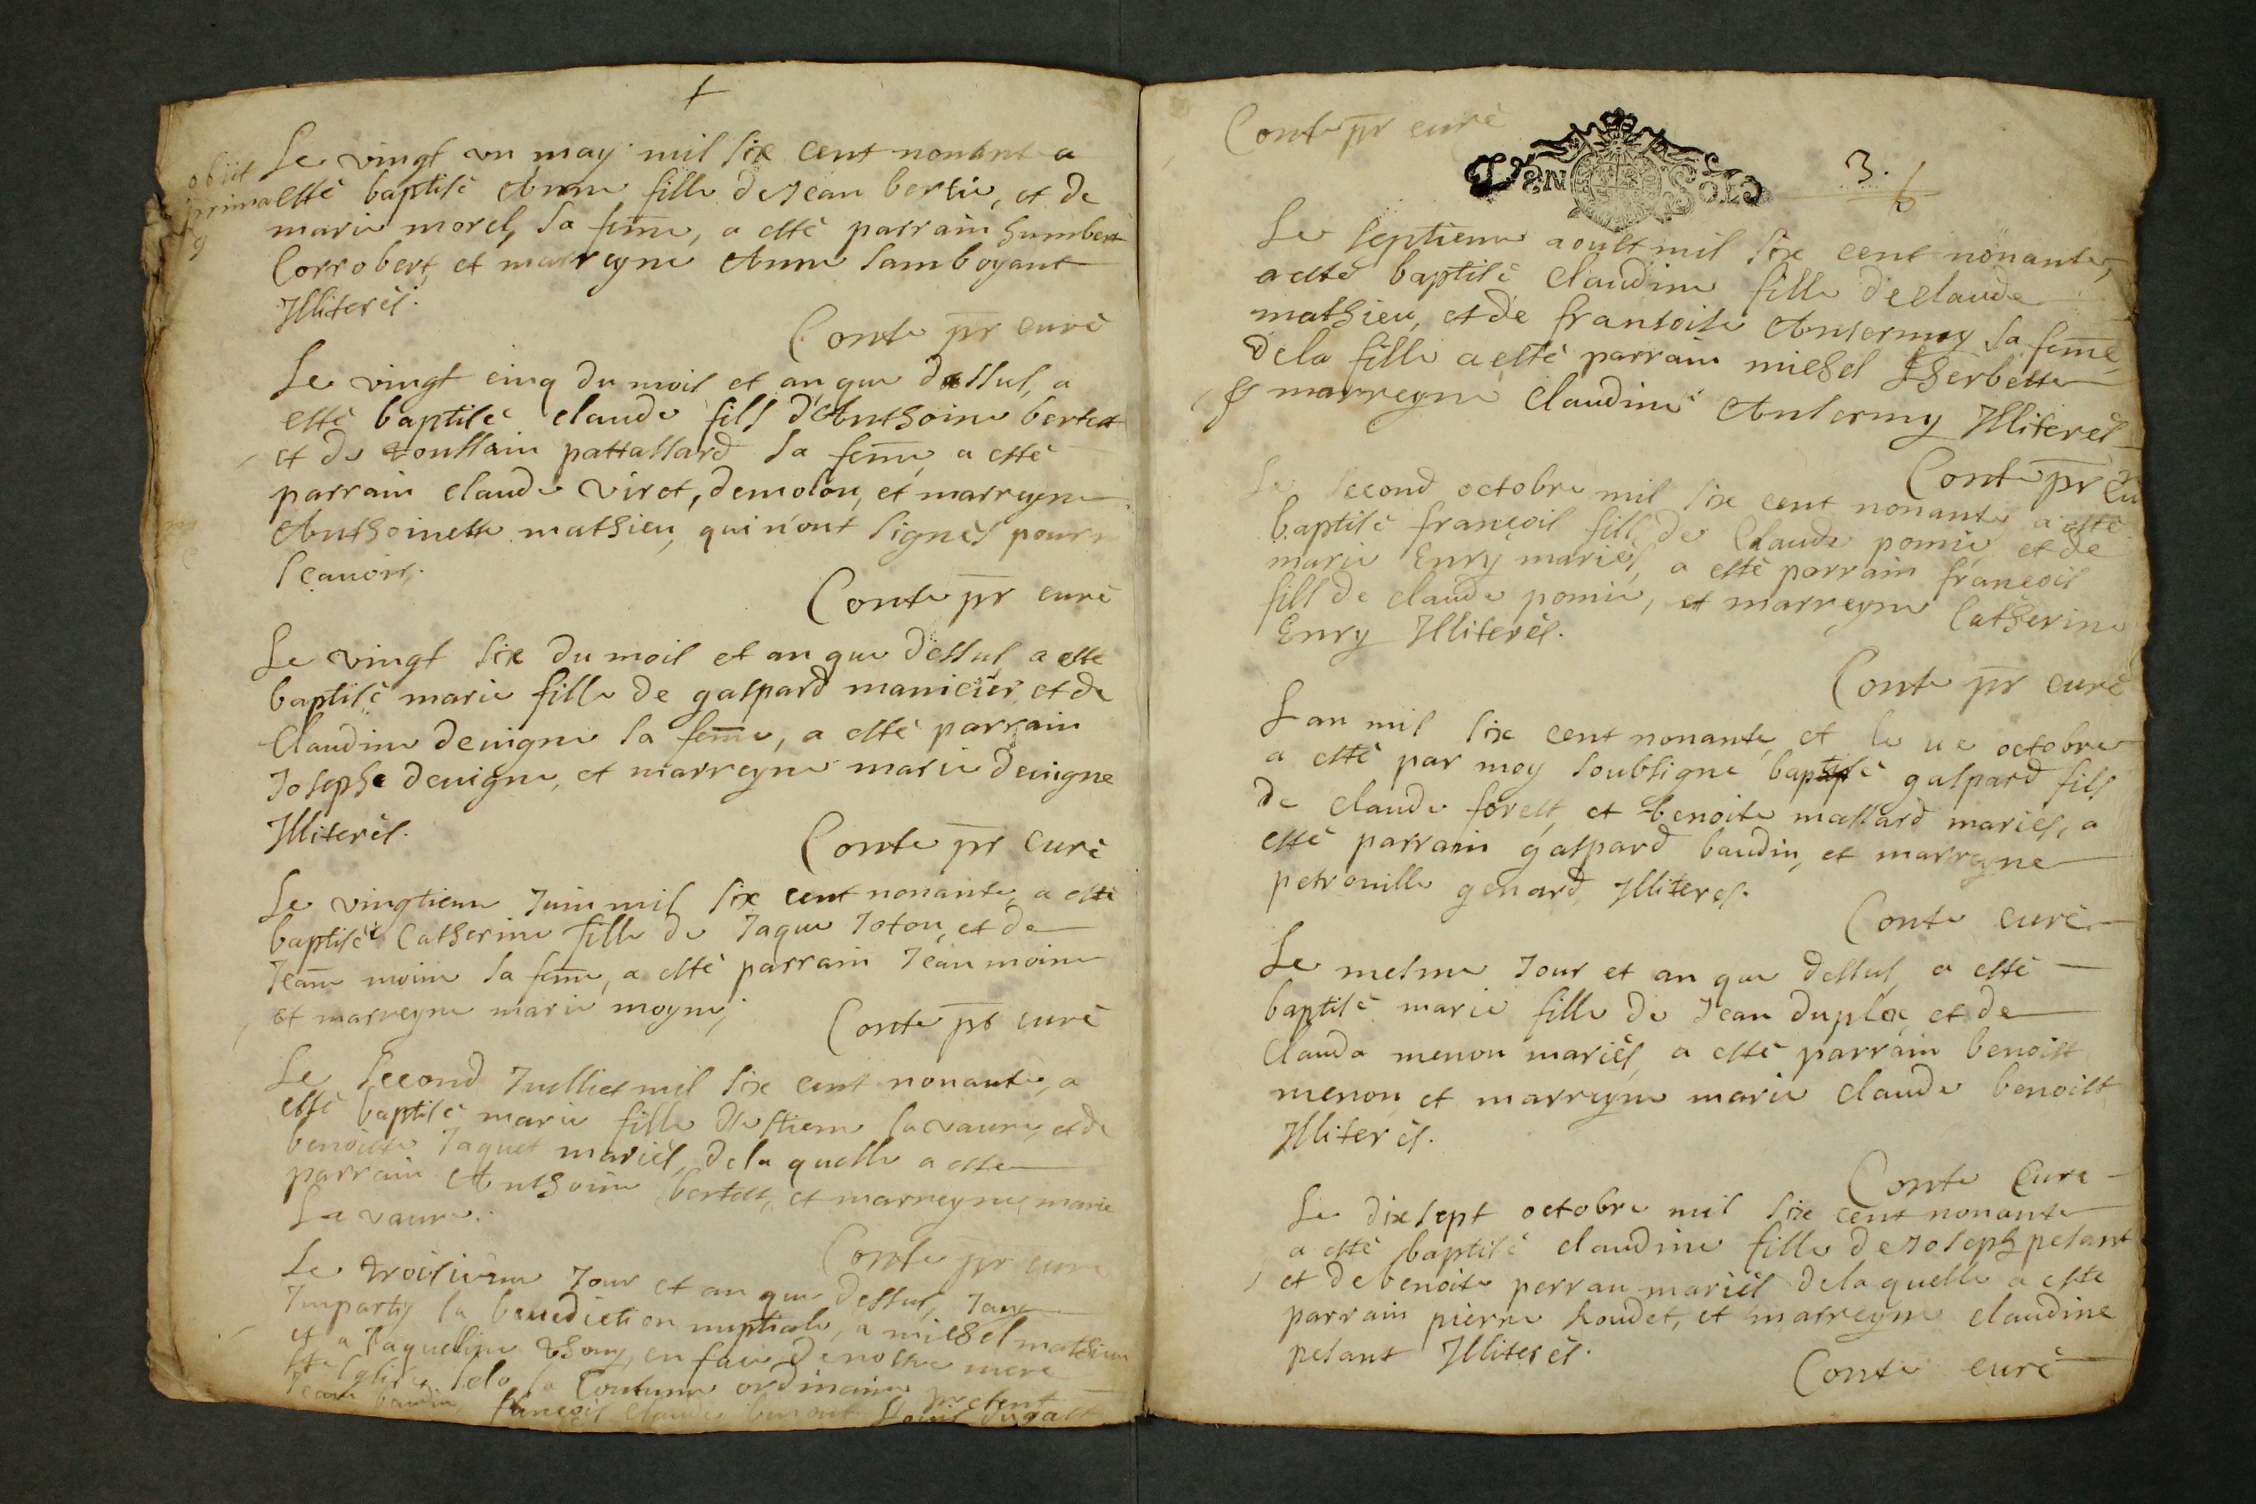 obiit
prima
9
Le vingt un may mil six cent nonante a
esté baptisé Anne fille de Jean bertie, et de
marie morel, sa feme, a esté parrain humbert
Corrobert, et marreyne Anne Lamboyant
Illiterés.
Conte pr curé
Le vingt cinq du mois et an que dessus, a
esté baptisé claude fils d'Anthoine bertet
et de toussain pattallard sa feme, a esté
parrain claude virot, demolon, et marreyne
Anthoinette mathieu, qui n'ont signés pour n
sçavoir.
Conte pr curé
Le vingt six du mois et an que dessus, a esté
baptisé marie fille de gaspard manicier et de
Claudine devigne sa feme, a esté parrain
Josephe devigne, et marreyne marie devigne
Illiterés.
Conte pr curé
Le vingtieme Juin mil six cent nonante, a esté
baptisé Catherine fille de Jaque Joton, et de
Jeane moine sa feme, a esté parrain Jean moine
et marreyne marie moyne,
Conte pr curé
Le second Juilliet mil six cent nonante, a
esté baptisé marie fille d'estiene lavaure, et de
benoitte Jaquet mariés, de la quelle a esté
parrain Anthoine bertet, et marreyne marie
Lavaure.
Conte pr curé
Le troisieme Jour et an que dessus, Jay
Imparty la benediction nuptiale, a michel mathieu
et a Jaqueline thomy, en face de nostre mere
Ste Eglise selo la Coutume ordinaire present
Jean baudin françois claude benoit
Conte pr curé
3.
Le septieme aoult mil six cent nonante,
a esté baptisé Claudine fille de claude
mathieu, et de fransoise Ansermoy sa feme,
de la fille a esté parrain michel Lherbette
et marreyne Claudine Ansermy Illiterés
Conte pr cu
Le second octobre mil six cent nonante a esté
baptisé françois fills de Claude pomie et de
marie Enry mariés, a esté parrain françois
fills de claude pomie, et marreyne Catherine
Enry Illiterés.
Conte pr curé
L an mil six cent nonante et le ue octobre
a esté par moy soubsigné baptisé gaspard fils
de claude forest, et benoite massard mariés, a
esté parrain gaspard baudin, et marreyne
petronille genard, Illiteres.
Conte curé
Le mesme Jour et an que dessus, a esté
baptisé marie fille de Jean duplex, et de
Clauda menon mariés, a esté parrain benoist
menon, et marreyne marie claude benoist
Illiterés.
Conte Curé
Le dixsept octobre mil six cent nonante
a esté baptisé claudine fille de Joseph pesant
et de benoite perrau mariés de la quelle a esté
parrain pierre houdet, et marreyne claudine
pesant Illiterés.
Conte curé